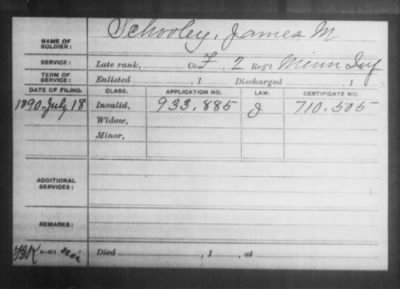 NAME OF SOLDIER: Schooley, James M
SERVICE: Late rank, Co. F, 2 Reg't Minn Inf
TERM OF SERVICE: Enlisted , 1 Discharged , 1
DATE OF FILING. CLASS. APPLICATION NO. LAW. CERTIFICATE NO.
1890, July 18 Invalid, 933.885 J 710.505
Widow,
Minor,
ADDITIONAL SERVICES:
REMARKS:
Died , 1 , at